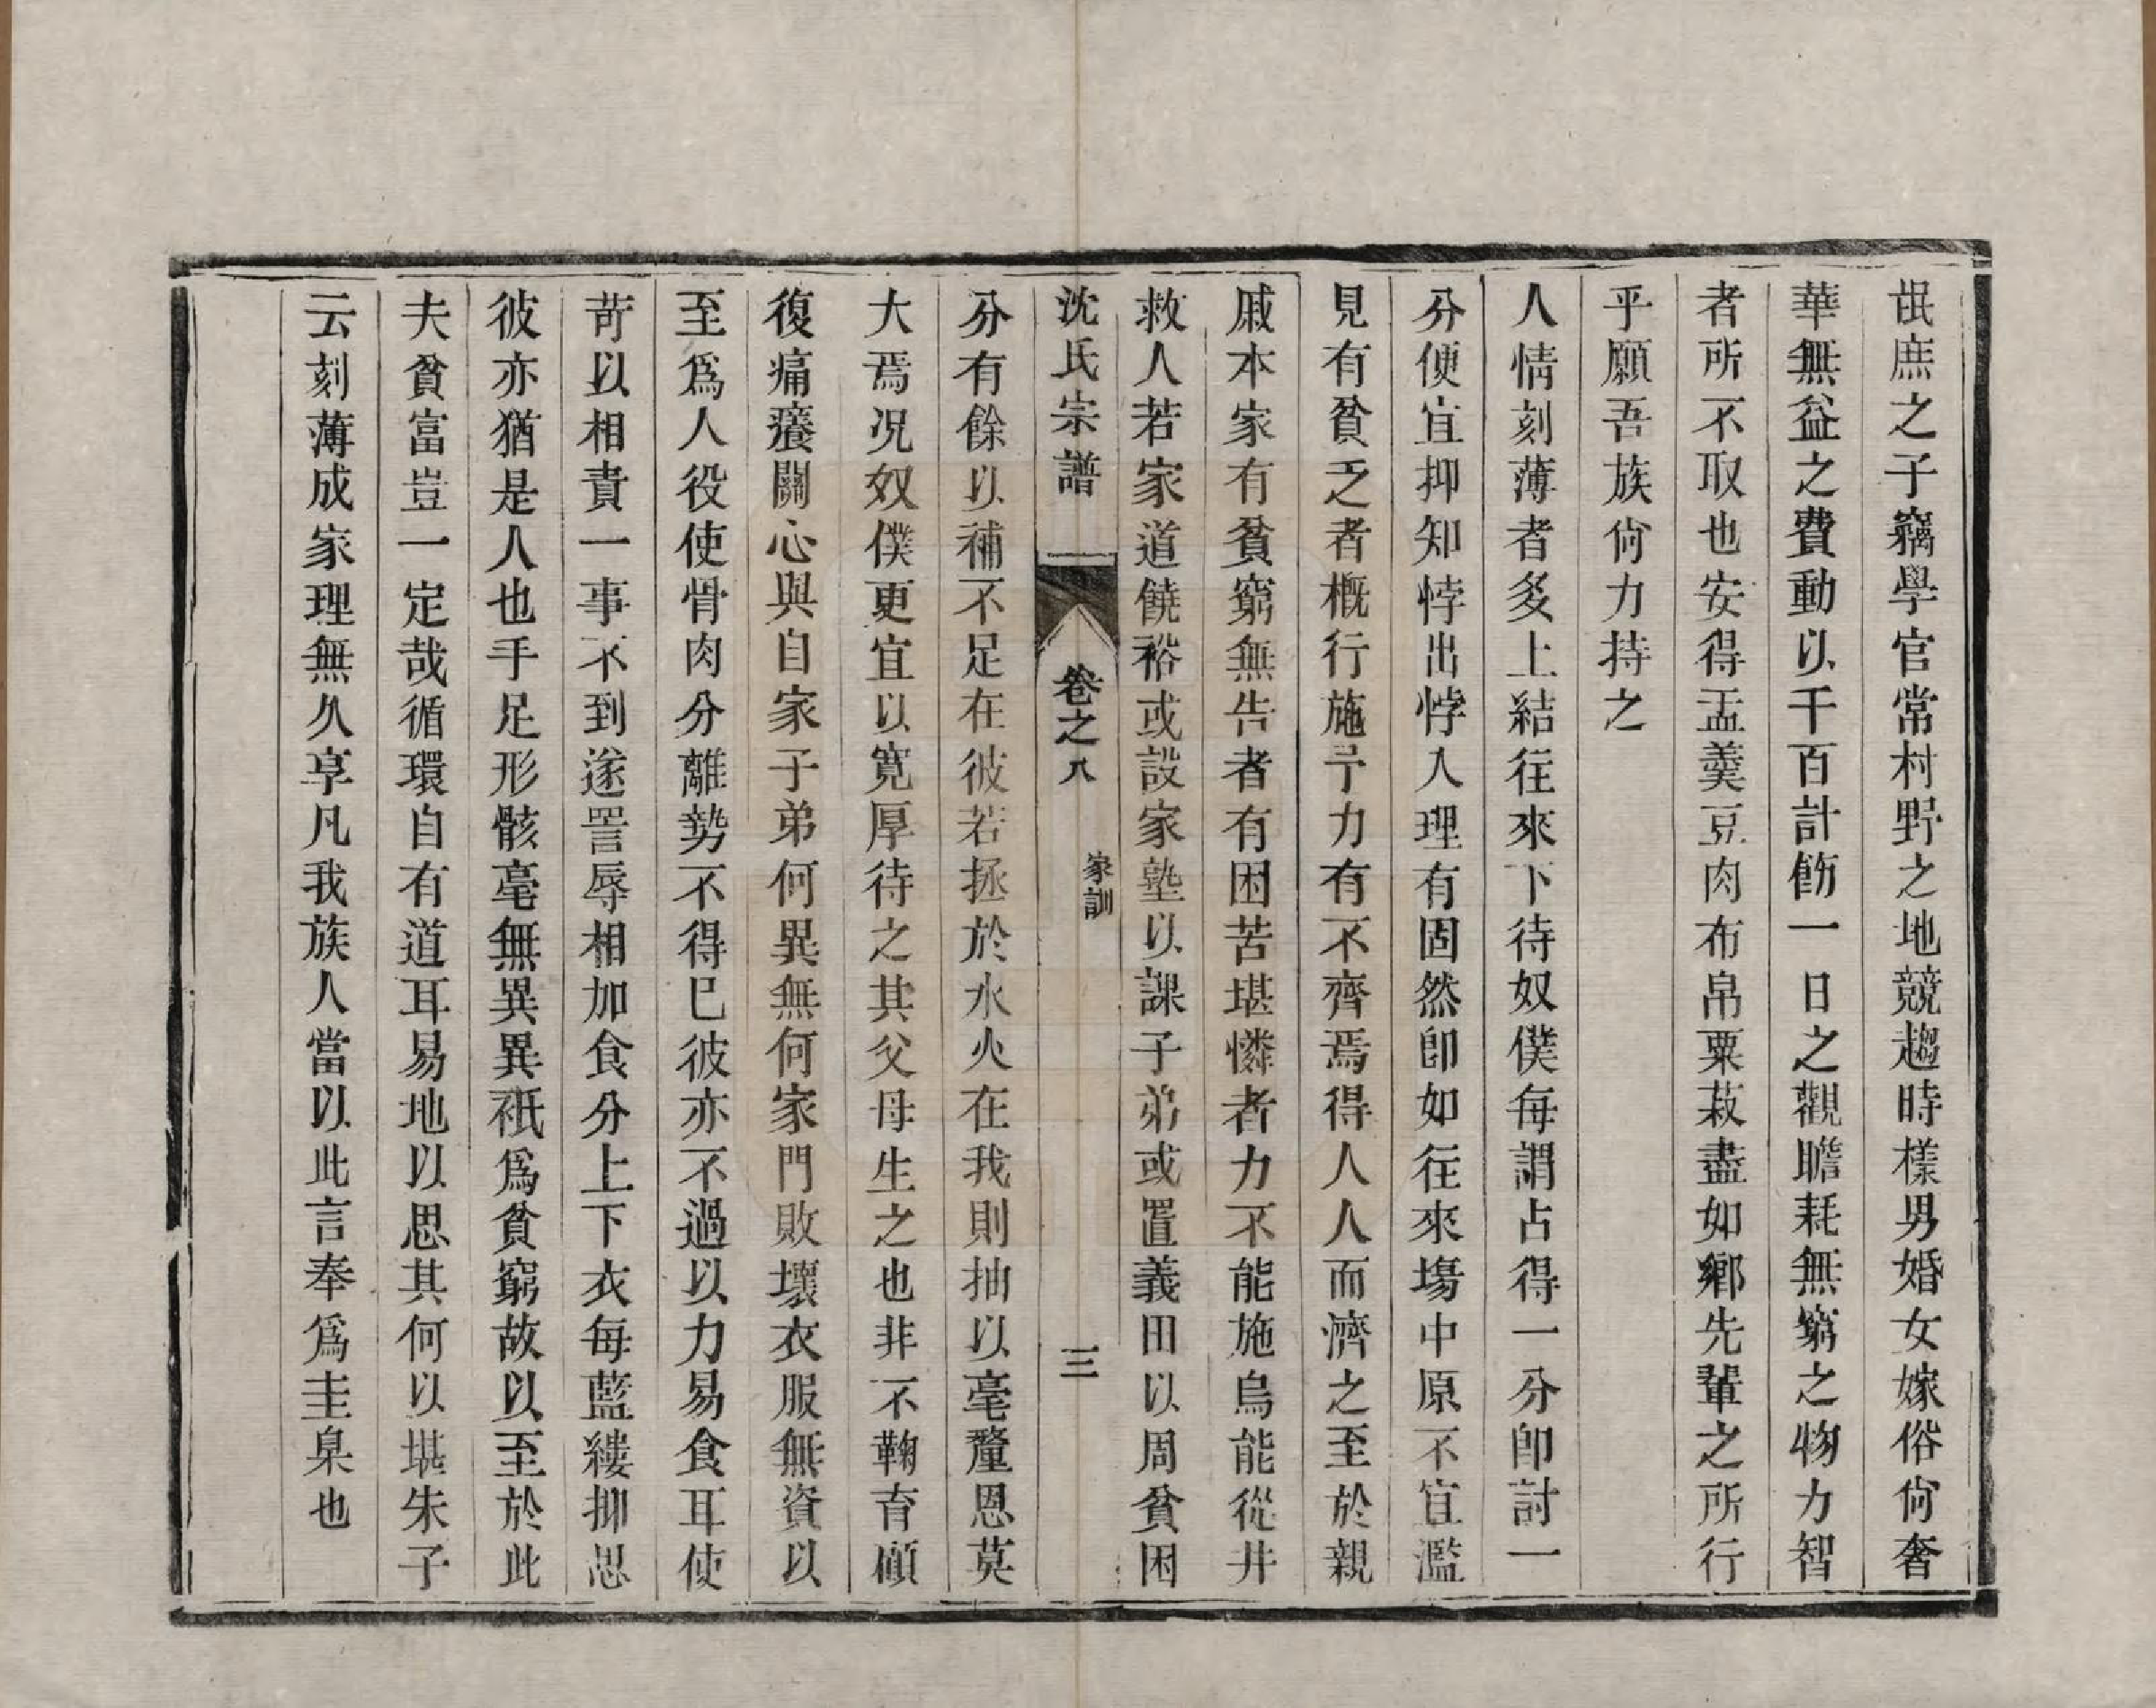 氓庶之子竊學官常村野之地競趨時樣男婚女嫁俗尙奢
華無益之費動以千百計飭一日之觀瞻耗無窮之物力智
者所不取也安得盂羹豆肉布帛粟菽盡如鄉先輩之所行
乎願吾族尙力持之
人情刻薄者多上結往來下待奴僕每謂占得一分卽討一
分便宜抑知悖出悖人理有固然卽如往來塲中原不宜濫
見有貧乏者槪行施予力有不齊焉得人人而濟之至於親
戚本家有貧窮無告者有困苦堪憐者力不能施烏能從井
救人若家道饒裕或設家塾以課子弟或置義田以周貧困
沈氏宗譜 卷之八 家訓 三
分有餘以補不足在彼若拯於水火在我則抽以毫釐恩莫
大焉况奴僕更宜以寬厚待之其父母生之也非不鞠育顧
復痛癢關心與自家子弟何異無何家門敗壞衣服無資以
至爲人役使骨肉分離勢不得已彼亦不過以力易食耳使
苛以相責一事不到遂詈辱相加食分上下衣每藍縷抑思
彼亦猶是人也手足形骸毫無異異祇爲貧窮故以至於此
夫貧富豈一定哉循環自有道耳易地以思其何以堪朱子
云刻薄成家理無久享凡我族人當以此言奉爲圭臬也